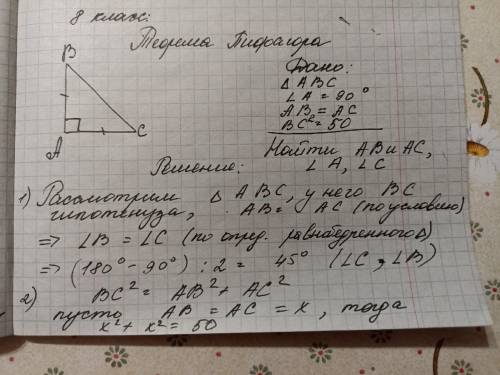 8 класс:
Теорема Пифагора
B
A
C
Дано:
Δ ABC
∠A = 90°
AB = AC
BC² = 50
Найти AB и AC,
∠A, ∠C
Решение:
1) Рассмотрим Δ ABC, у него BC
гипотенуза, AB = AC (по условию)
=> ∠B = ∠C (по опред. равнобедренного Δ)
=> (180° - 90°) : 2 = 45° (∠C, ∠B)
2) BC² = AB² + AC²
пусть AB = AC = x, тогда
x² + x² = 50